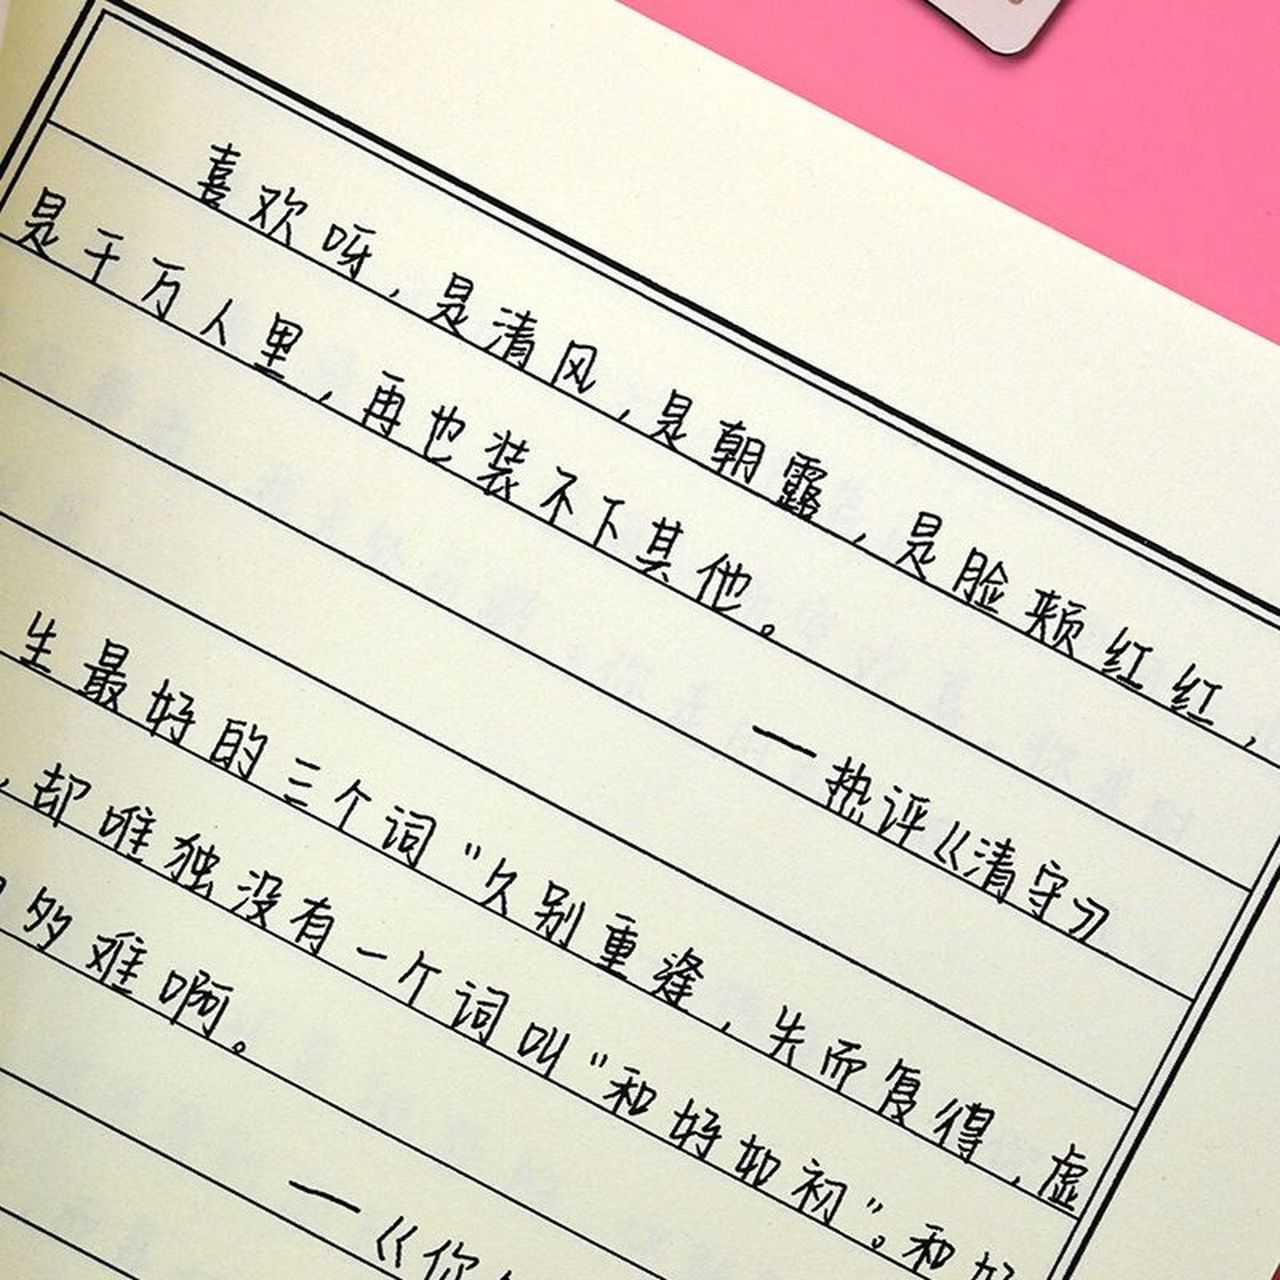 喜欢呀，是清风，是朝露，是脸颊红红，
是千万人里，再也装不下其他。
—热评《清守》
生最好的三个词“久别重逢，失而复得，虚
，却唯独没有一个词叫“和好如初”。和好
的难啊。
—《你